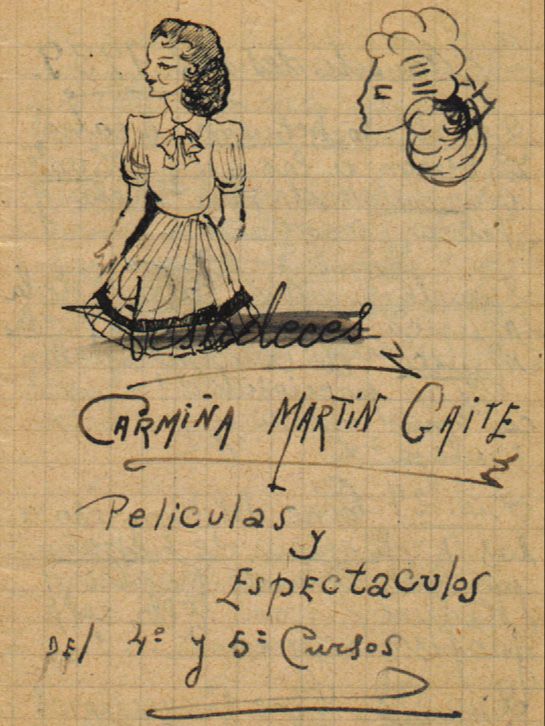 CARMIÑA MARTIN GAITE
Peliculas
y
ESPECTACULOS
DEl 4º y 5º Cursos